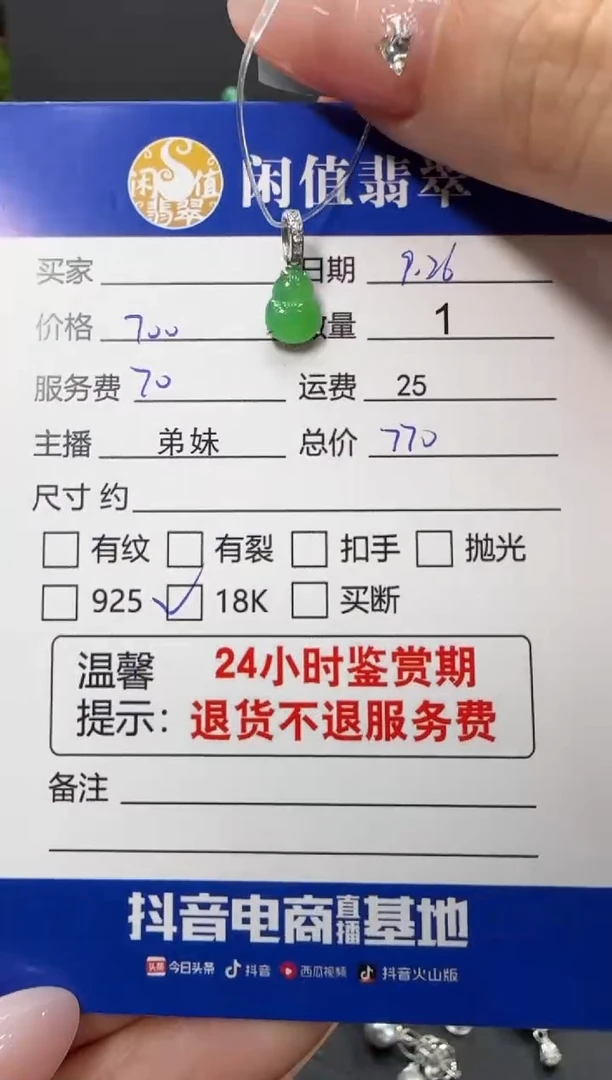 闲值翡翠
闲值翡翠
买家 日期 9.26
价格 700 数量 1
服务费 70 运费 25
主播 弟妹 总价 770
尺寸 约
有纹 有裂 扣手 抛光
925 18K 买断
温馨提示： 24小时鉴赏期
退货不退服务费
备注
抖音电商直播基地
头条 今日头条 抖音 西瓜视频 抖音火山版